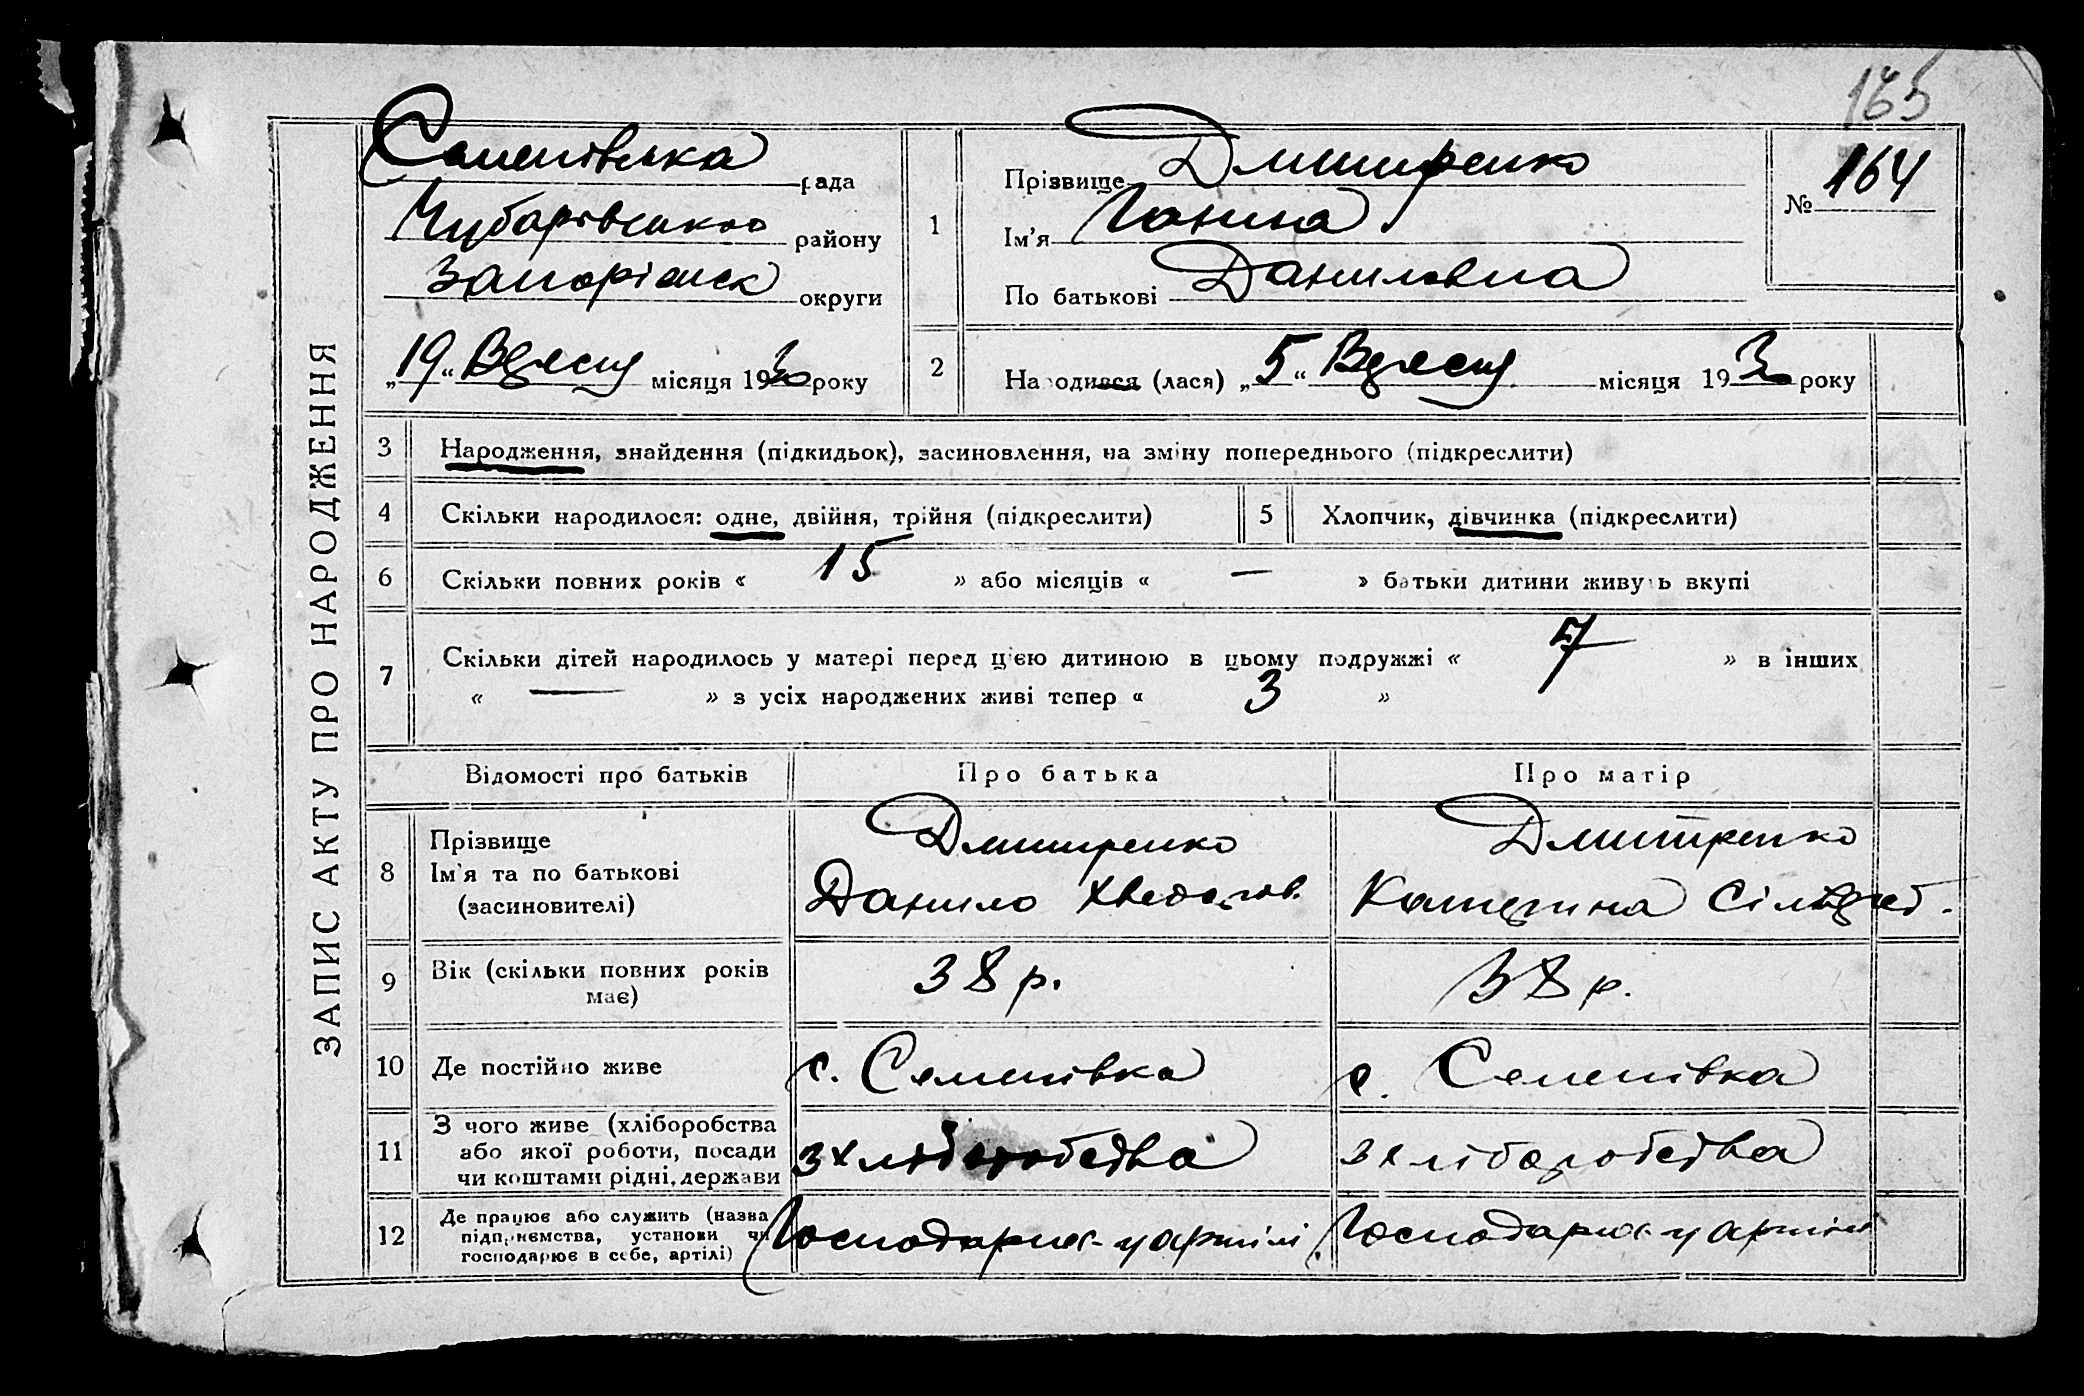 165
ЗАПИС АКТУ ПРО НАРОДЖЕННЯ
Семенівська рада
Чубарівського району
Запоріжск округи
„19“ Вересня місяця 1930 року
1
Прізвище Дмитренко
Ім'я Ганна
По батькові Даниловна
№ 164
2
Народився (лася) „5“ Вересня місяця 1930 року
3 Народження, знайдення (підкидьок), засиновлення, на зміну попереднього (підкреслити)
4 Скільки народилося: одне, двійня, трійня (підкреслити) 5 Хлопчик, дівчинка (підкреслити)
6 Скільки повних років « 15 » або місяців « — » батьки дитини живуть вкупі
7 Скільки дітей народилось у матері перед цією дитиною в цьому подружжі « 7 » в інших
« — » з усіх народжених живі тепер « 3 »
Відомості про батьків Про батька Про матір
8 Прізвище Дмитренко Дмитренко
Ім'я та по батькові Данило Хведоров. Катерина
(засиновителі)
9 Вік (скільки повних років має) 38 р. 38 р.
10 Де постійно живе с. Семенівка с. Семенівка
11 З чого живе (хліборобства
або якої роботи, посади
чи коштами рідні, держави
з хліборобства з хліборобства
12 Де працює або служить (назва
підприємства, установи чи
господарює в себе, артілі)
Господарює у артілі Господарює у артілі